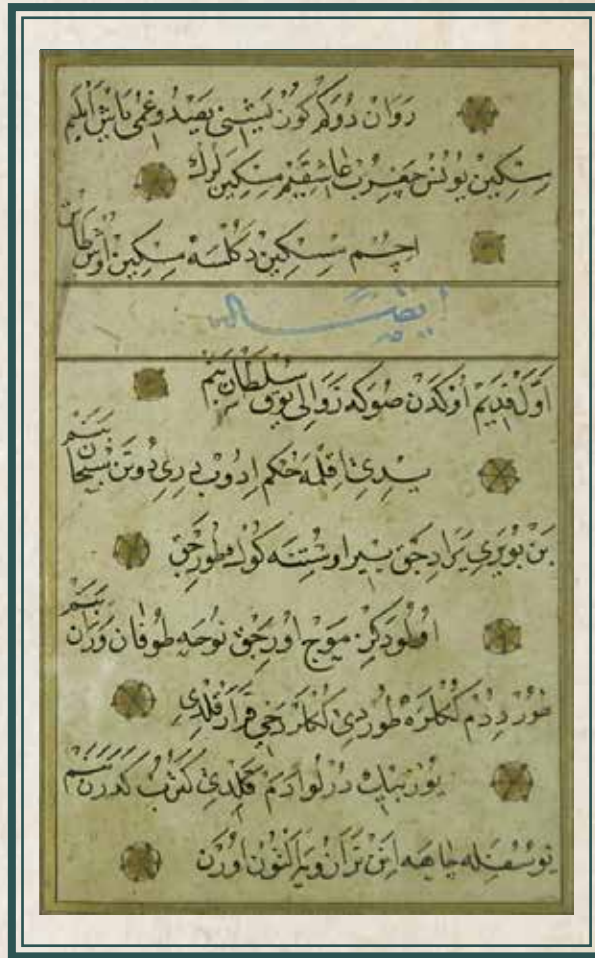 رَوَانْ دُوَكَرْ كُوزْ يَشِنِي بَصِدُوغِمْ يَاشْ ايلَيَمْ
مِسْكِينْ يُونُسْ چَغِرُبْ عَاشِقَمْ مِسْكِينْ لَرَكْ
اچُمْ مِسْكِينْ دَكُلْسَه مِسْكِينْ اوُشْ طَاشْ
ايضًا لَه
اَوَّلْ قَدِيمْ اُوكْدَنْ صُوكَه زَوَالِي يُوقْ سُلْطَانْ بَنَمْ
يِدِي اقْلِمَه حُكمْ ادُوبْ دِرِي دُوتَنْ سُبْحَانْ بَنَمْ
بَنْ بُو يِرِي يَرَادِجَقْ يِيرْ اوسْتِنَه كُوكْ طُورِجَقْ
اوُلُو دَكِزْ مَوْجْ اوُرِجَقْ نُوحَه طُوفَانْ وِرَنْ بَنَمْ
طُورْ دِدُمْ كُكْلَرَه طُوردِي كُكْلَرْ دَخِي قَرَارْ قِلْدِي
يُوزْ بِيكْ دُرْلُو ادَمْ كَلْدِي كَتُرُبْ كِدَرَنْ بَنَمْ
يُوسُفِلَه چَاهَه اِنَنْ تَرَازُويَه اَلْتُونْ اوُرَنْ